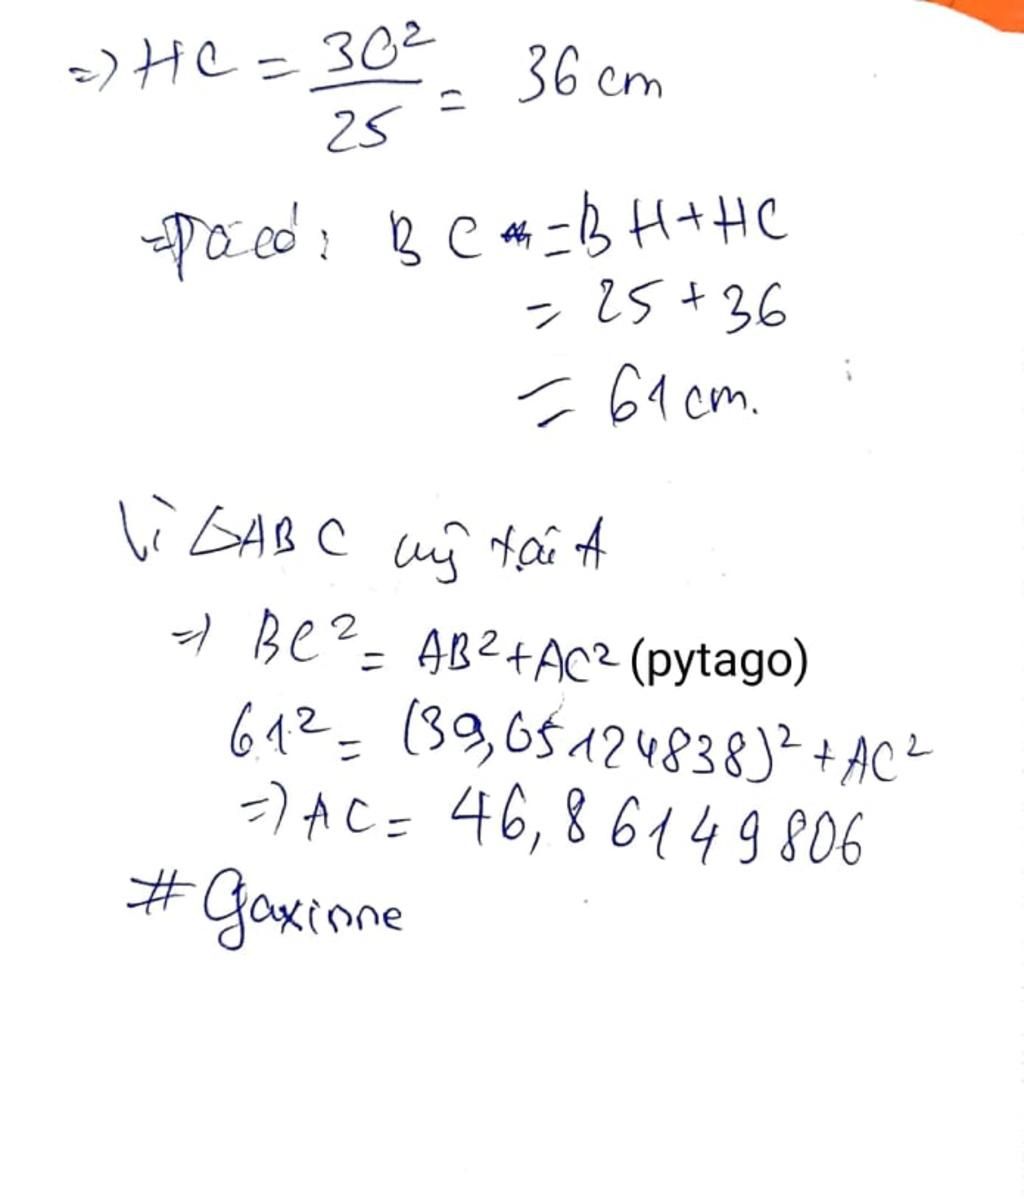 => HC = 30² / 25 = 36 cm
Ta có: BC = BH + HC
= 25 + 36
= 61 cm.
Vì △ABC uý tại A
=> BC² = AB² + AC² (pytago)
61² = (39,05124838)² + AC²
=> AC = 46,86149806
# Gaxinne